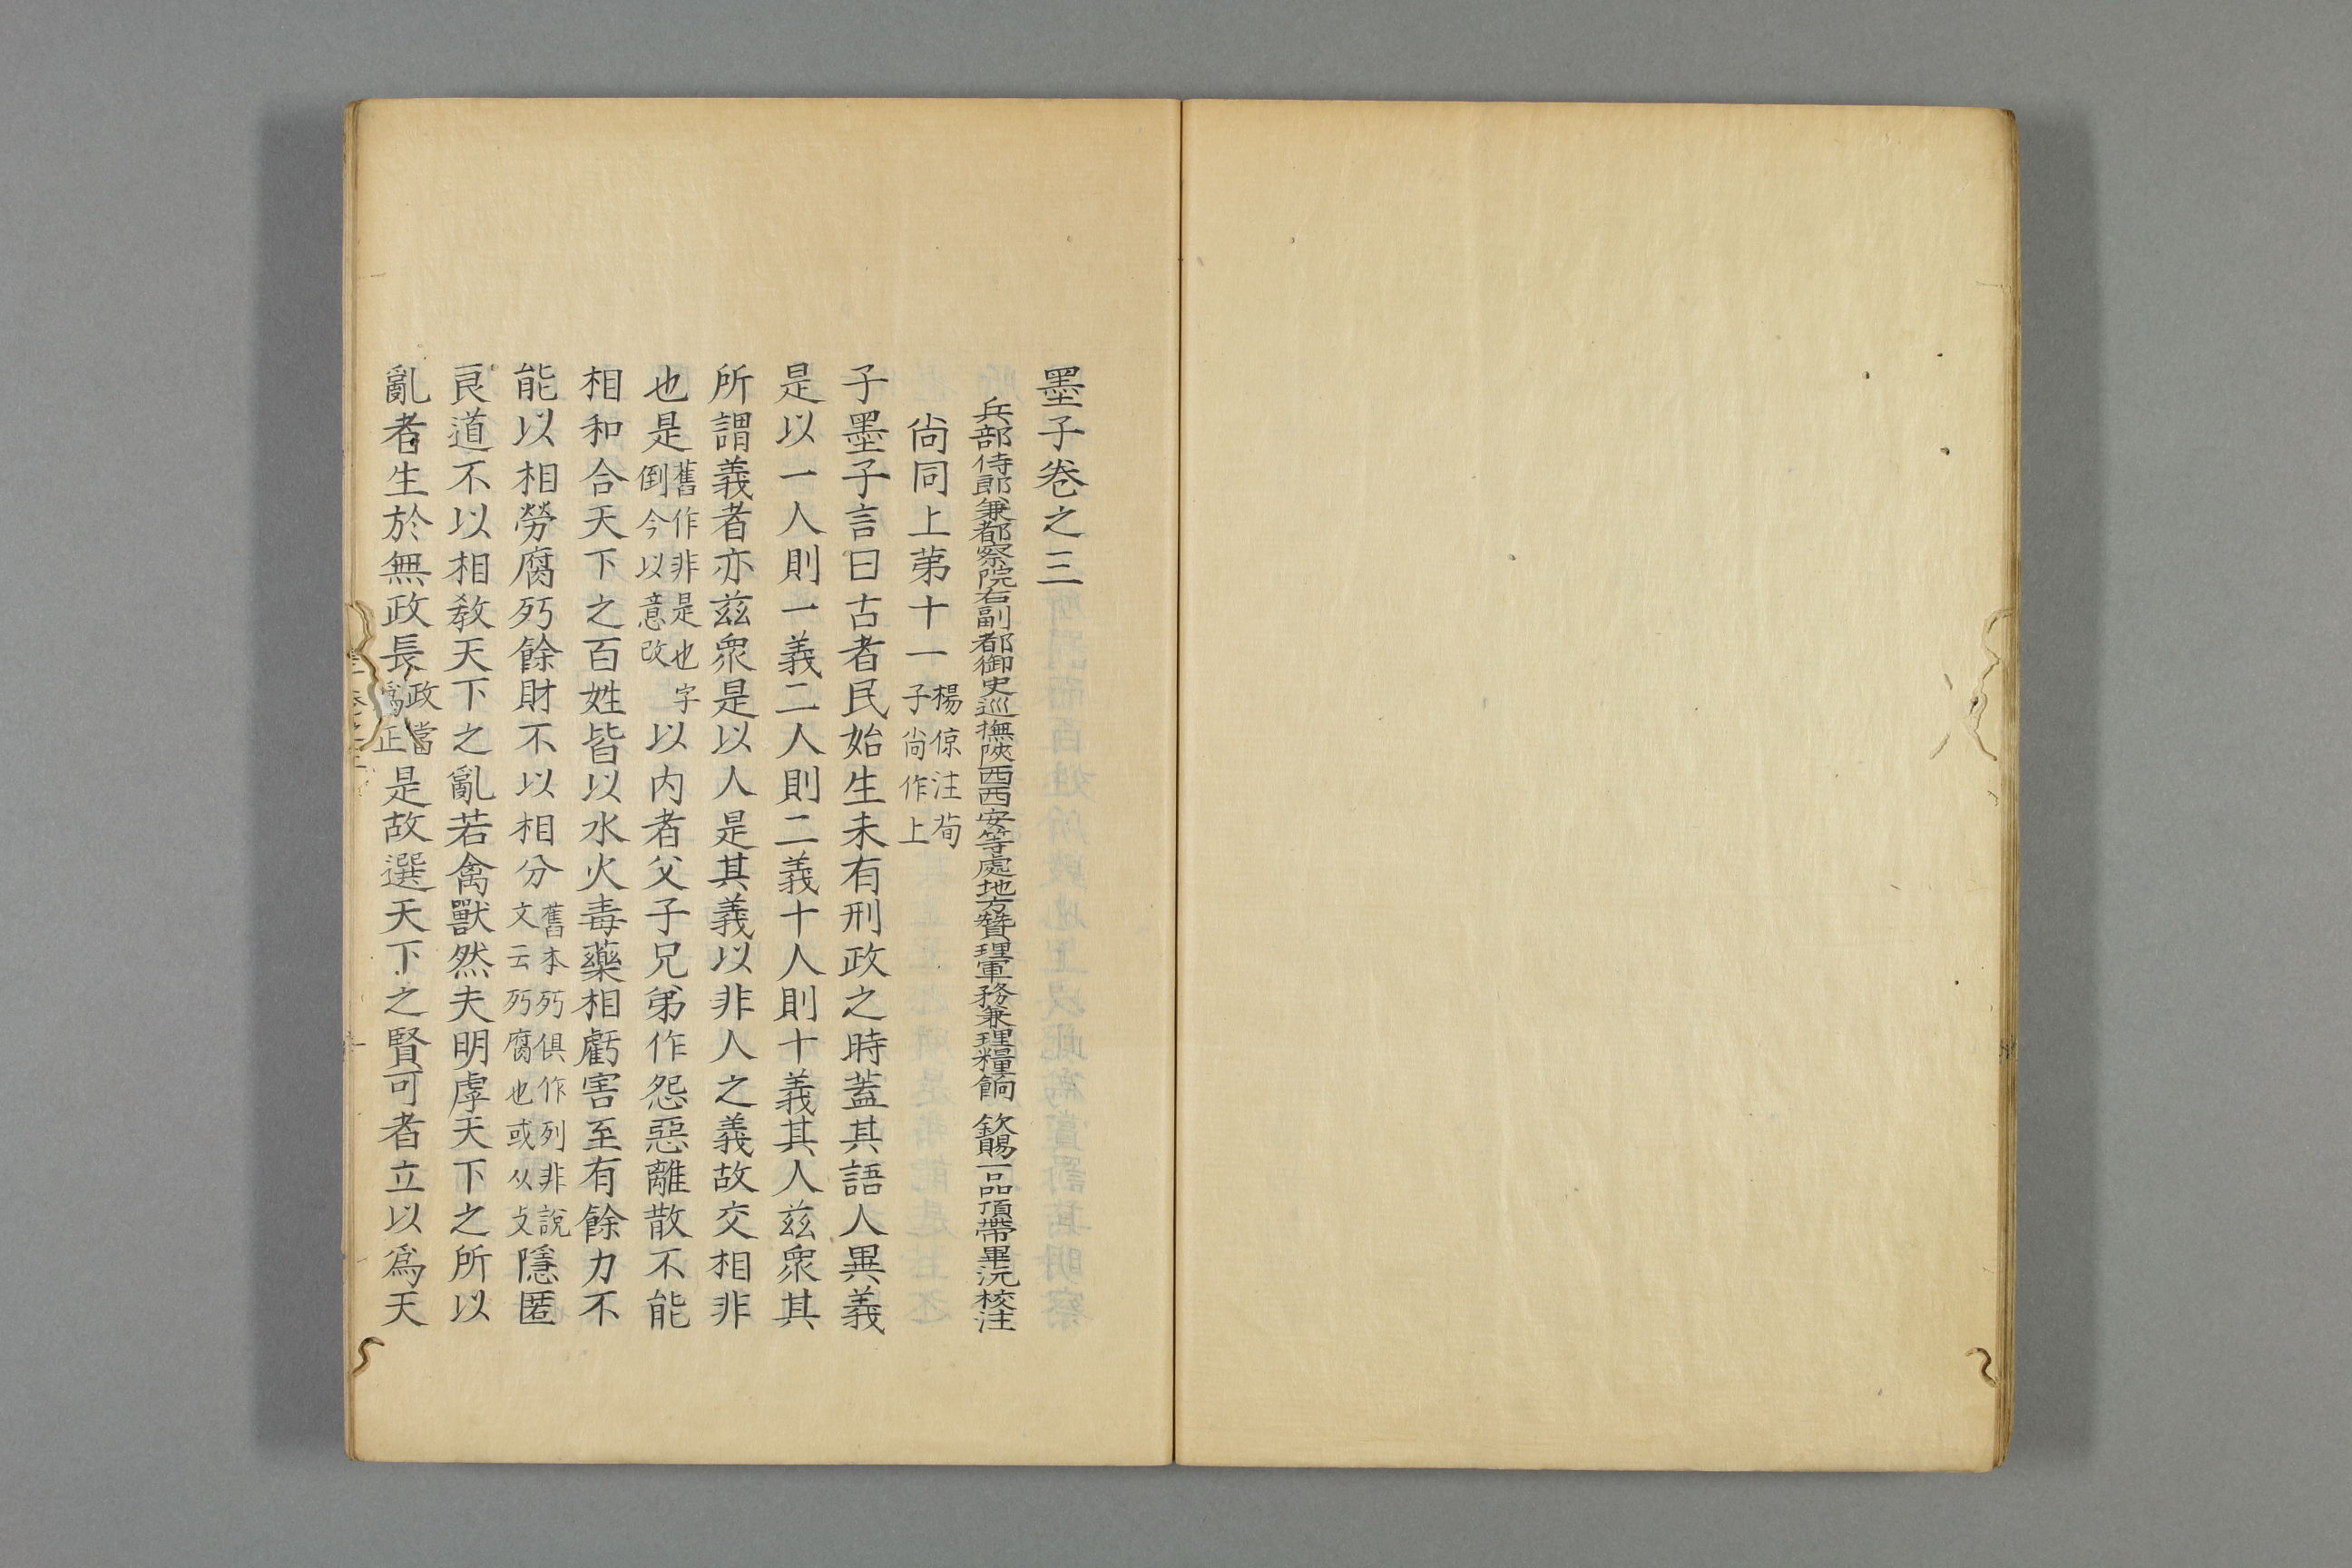 墨子卷之三
兵部侍郎兼都察院右副都御史巡撫陝西西安等處地方贊理軍務兼理糧餉 欽賜一品頂帶畢沅校注
尙同上苐十一楊倞注荀子尙作上
子墨子言曰古者民始生未有刑政之時蓋其語人異義
是以一人則一義二人則二義十人則十義其人兹衆其
所謂義者亦兹衆是以人是其義以非人之義故交相非
也是舊作非是也字倒今以意改以内者父子兄弟作怨惡離散不能
相和合天下之百姓皆以水火毒藥相虧害至有餘力不
能以相勞腐𣧑餘財不以相分舊本𣧑俱作列非說文云𣧑腐也或从攴隱匿
良道不以相敎天下之亂若禽獸然夫明虖天下之所以
亂者生於無政長政當爲正是故選天下之賢可者立以爲天